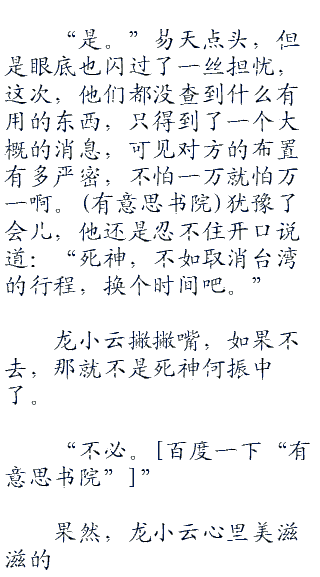 “是。”易天点头，但
是眼底也闪过了一丝担忧，
这次，他们都没查到什么有
用的东西，只得到了一个大
概的消息，可见对方的布置
有多严密，不怕一万就怕万
一啊。(有意思书院)犹豫了
会儿，他还是忍不住开口说
道：“死神，不如取消台湾
的行程，换个时间吧。”
龙小云撇撇嘴，如果不
去，那就不是死神何振中
了。
“不必。[百度一下“有
意思书院”]”
果然，龙小云心里美滋
滋的